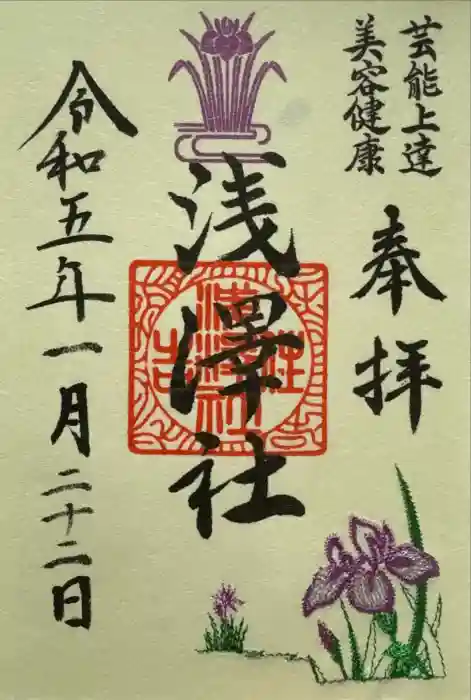 芸能上達
美容健康
奉拝
浅澤社
令和五年一月二十二日